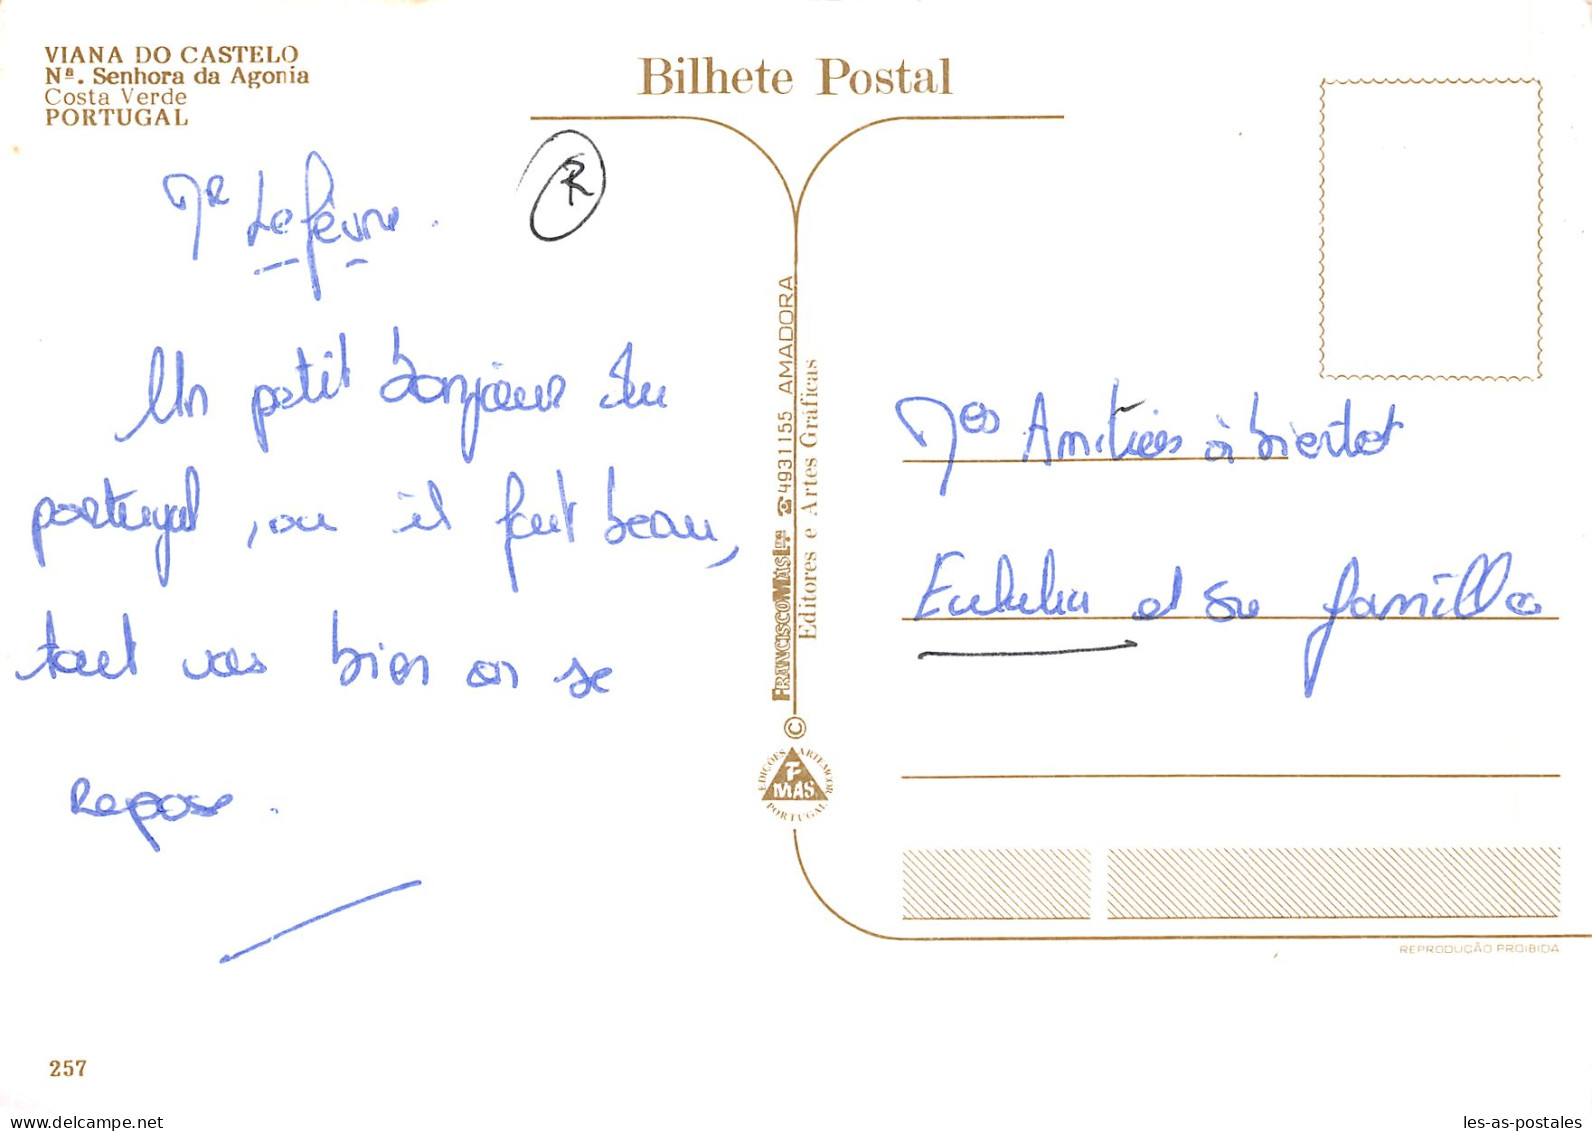 VIANA DO CASTELO
Nª. Senhora da Agonia
Costa Verde
PORTUGAL
Bilhete Postal
R
Mr Lefèvre.
Un petit bonjour du
portugal, ou il fait beau,
tout vas bien on se
Repose.
FRANCISCO MAS Lda ☎ 4931155 AMADORA
Editores e Artes Gráficas
©
EDIÇÕES ARTEMCOR
F
MAS.
PORTUGAL
Mes Amitiées à bientot
et sa famille
REPRODUÇÃO PROIBIDA
257
les-as-postales